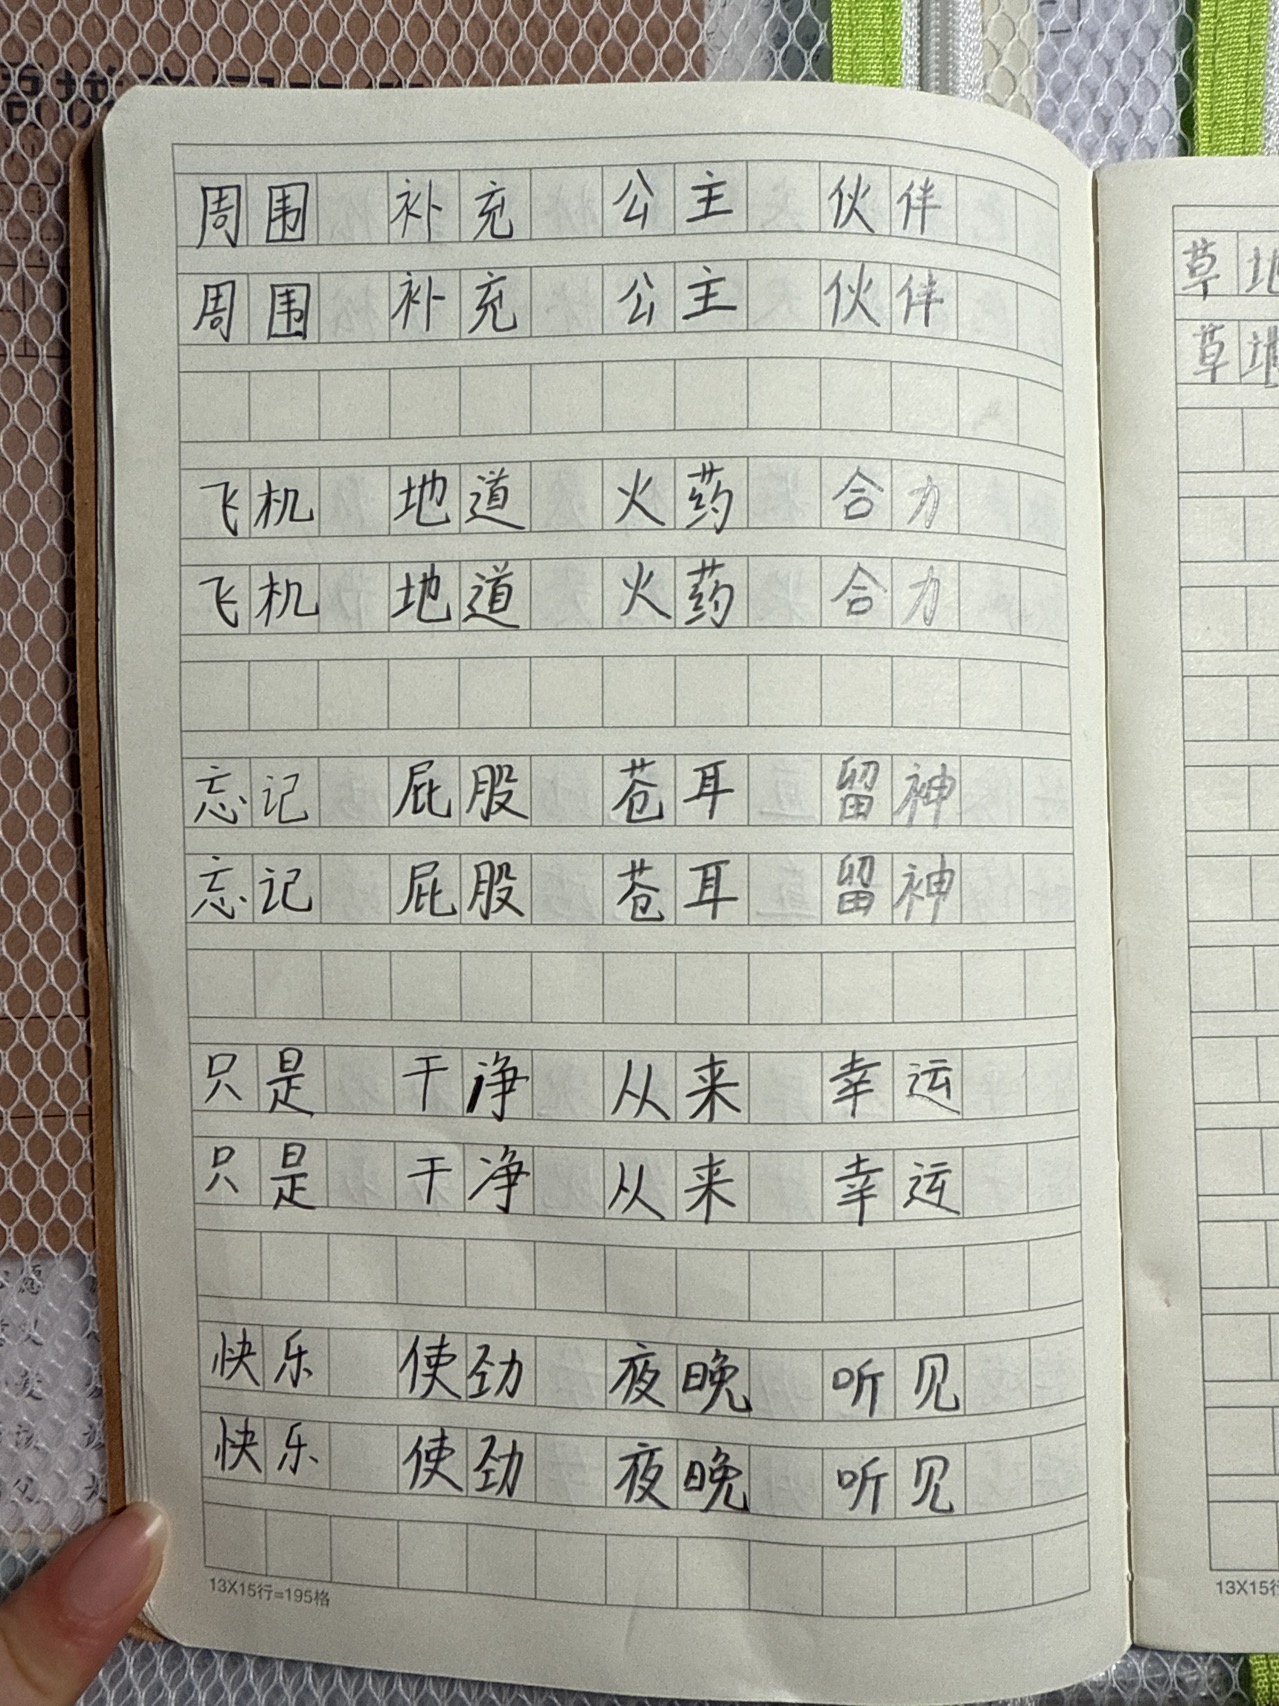 周围 补充 公主 伙伴
周围 补充 公主 伙伴
飞机 地道 火药 合力
飞机 地道 火药 合力
忘记 屁股 苍耳 留神
忘记 屁股 苍耳 留神
只是 干净 从来 幸运
只是 干净 从来 幸运
快乐 使劲 夜晚 听见
快乐 使劲 夜晚 听见
13X15行=195格
草地
草地
13X15行